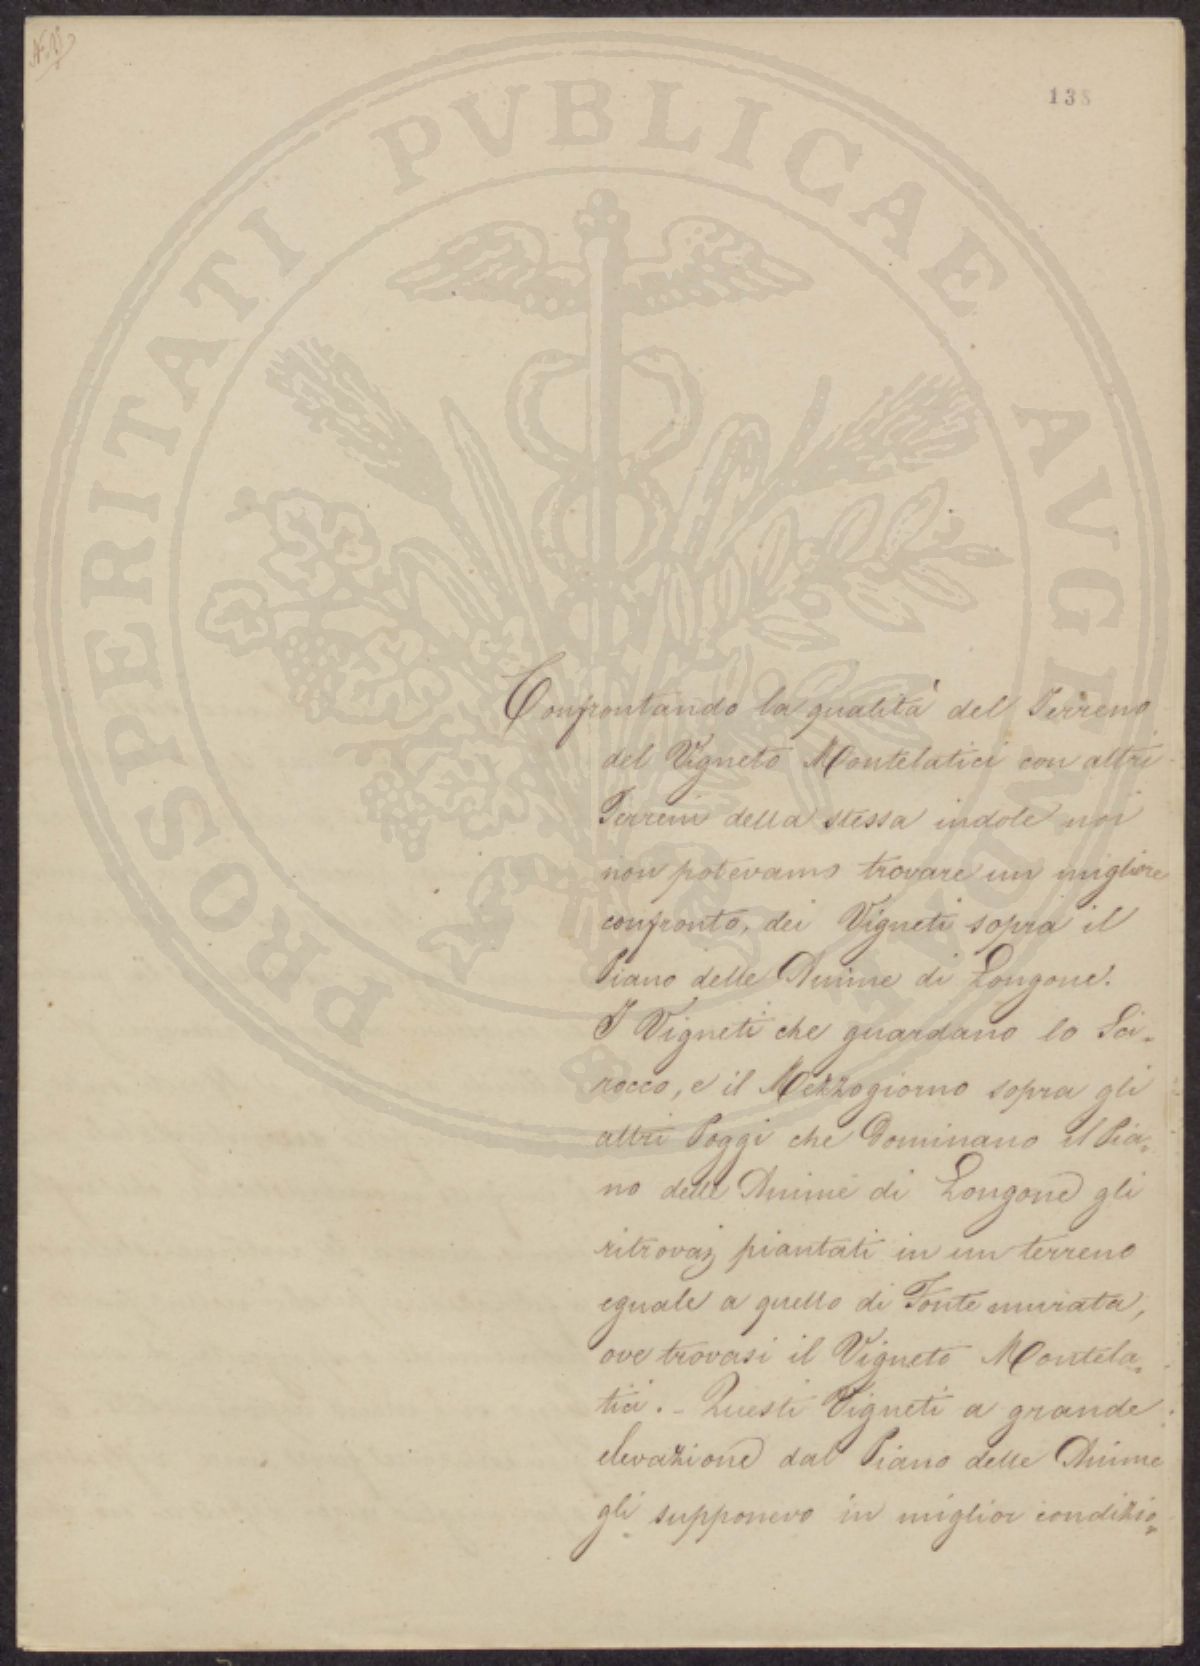 138
PROSPERITATI PVBLICAE AVGENDAE
Confrontando la qualità del Terreno
del Vigneto Montelatici con altri
Terreni della stessa indole noi
non potevamo trovare un migliore
confronto, dei Vigneti sopra il
Piano delle Anime di Longone.
I Vigneti che guardano lo Sci-
rocco, e il Mezzogiorno sopra gli
altri Poggi che Dominano il Pia-
no delle Anime di Longone gli
ritrovai piantati in un terreno
eguale a quello di Fonte murata,
ove trovasi il Vigneto Montela-
tici. - Questi Vigneti a grande
elevazione dal Piano delle Anime
gli supponevo in miglior condizio-